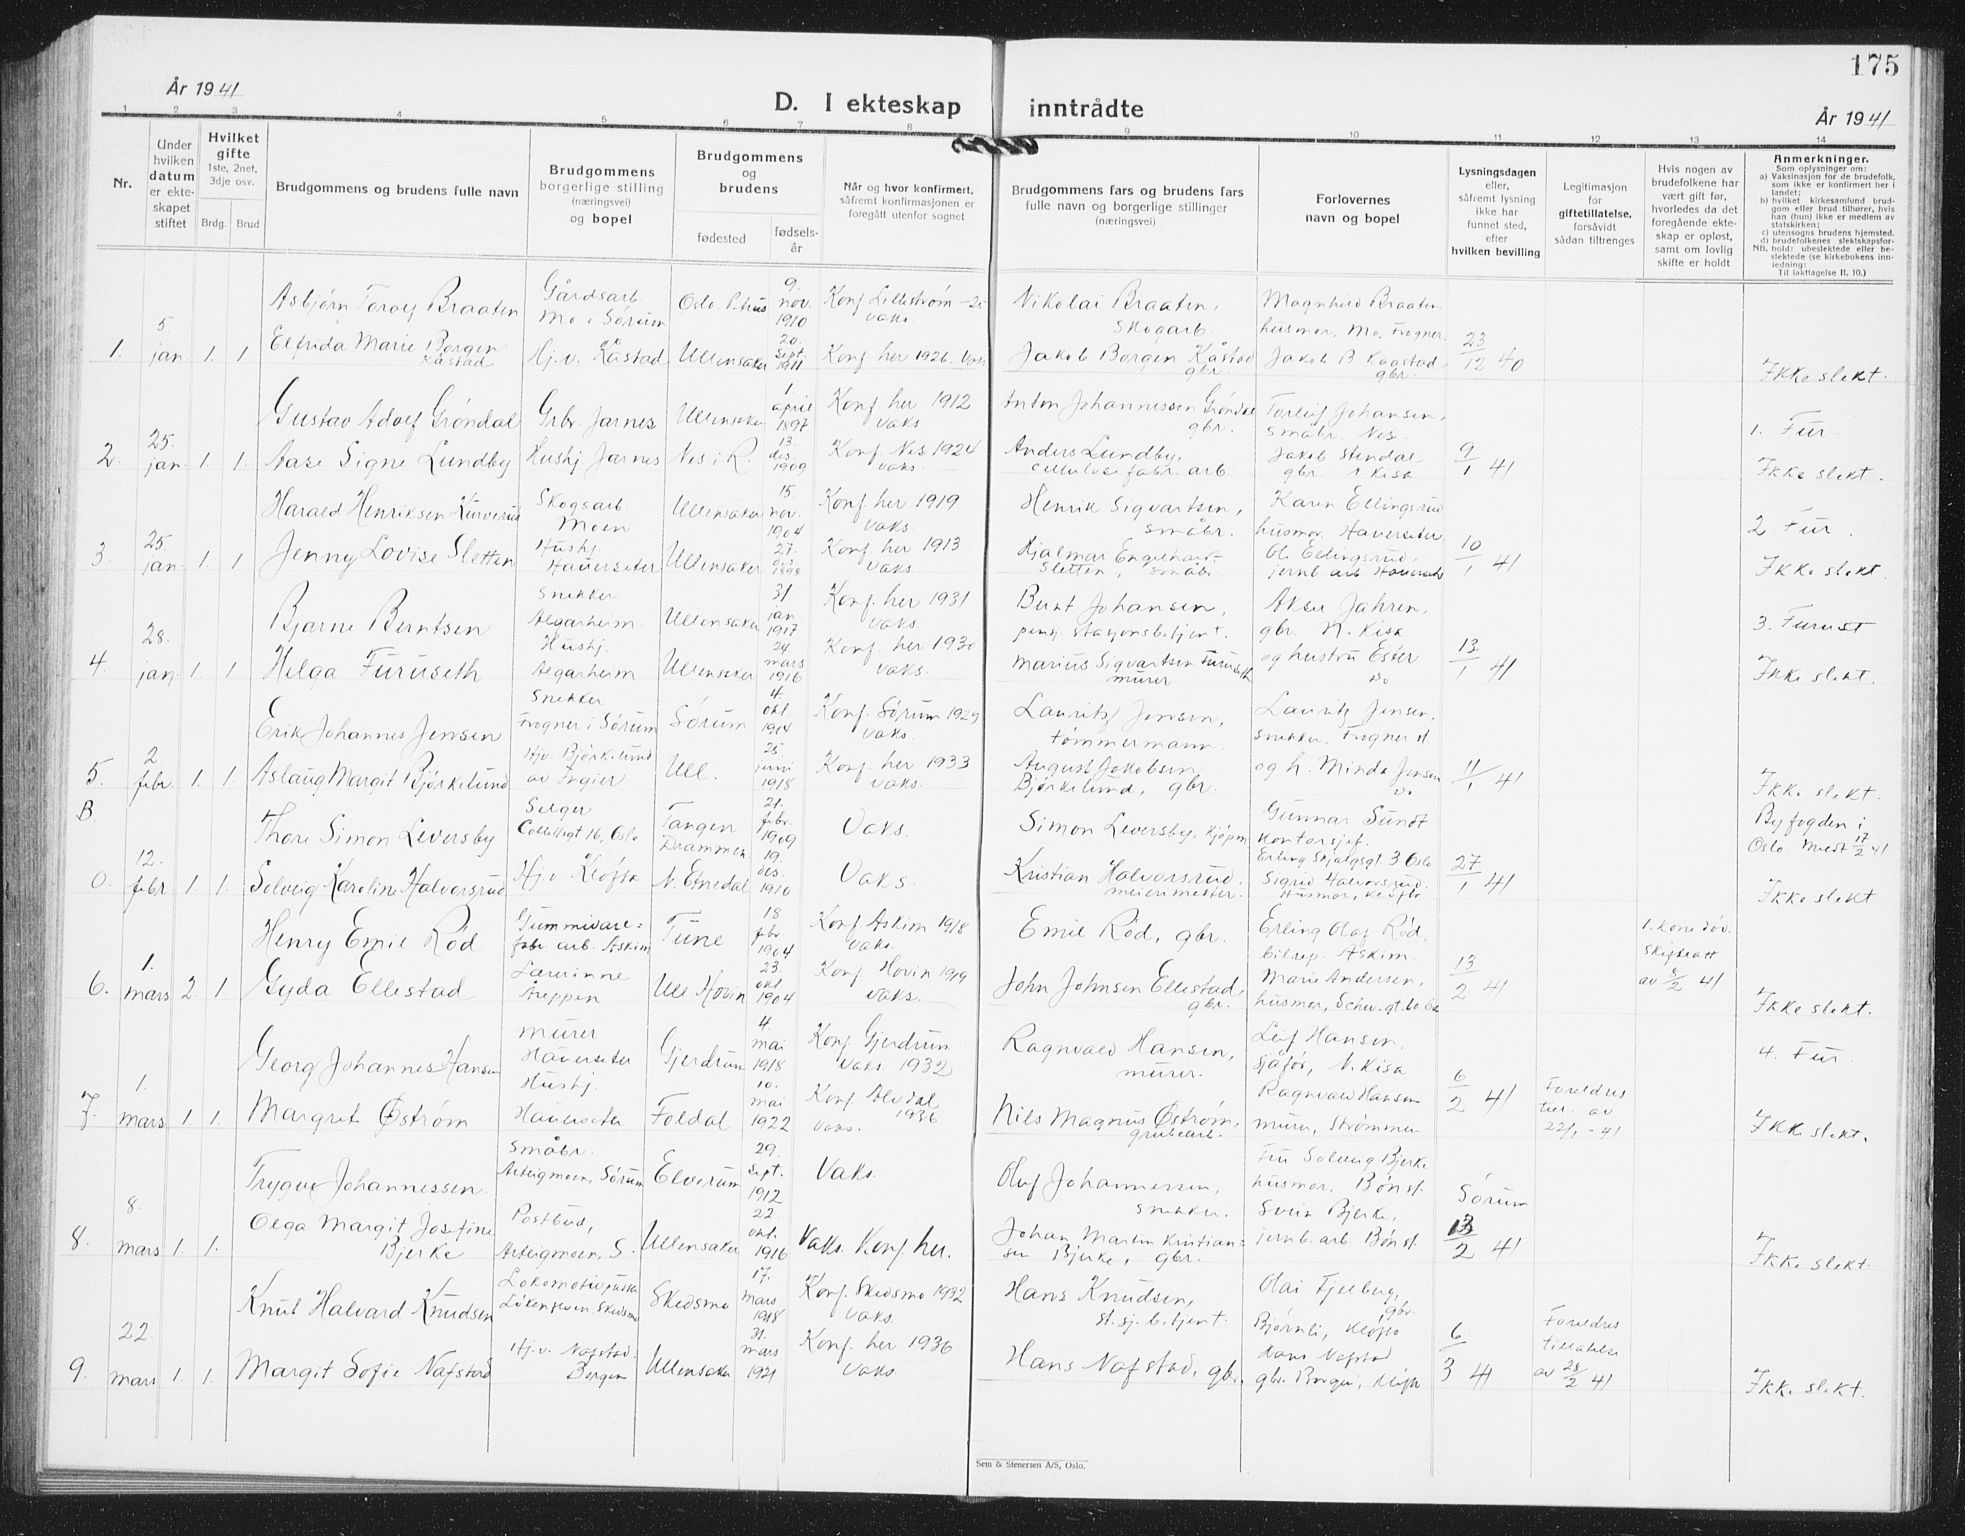 175
År 1941
D. I ekteskap inntrådte
År 1941
1 2 3 4 5 6 7 8 9 10 11 12 13 14
Nr.
Under hvilken datum er ekteskapet stiftet
Hvilket gifte
1ste, 2net, 3dje osv.
Brdg. Brud
Brudgommens og brudens fulle navn
Brudgommens borgerlige stilling (næringsvei) og bopel
Brudgommens og brudens
fødested
fødselsår
Når og hvor konfirmert, såfremt konfirmasjonen er foregått utenfor sognet
Brudgommens fars og brudens fars fulle navn og borgerlige stillinger (næringsvei)
Forlovernes navn og bopel
Lysningsdagen eller, såfremt lysning ikke har funnet sted, efter hvilken bevilling
Legitimasjon for giftetillatelse, forsåvidt sådan tiltrenges
Hvis nogen av brudefolkene har vært gift før, hvorledes da det foregående ekteskap er opløst, samt om lovlig skifte er holdt
Anmerkninger.
Som oplysninger om:
a) Vaksinasjon for de brudefolk, som ikke er konfirmert her i landet;
b) hvilket kirkesamfund brudgom eller brud tilhører, hvis han (hun) ikke er medlem av statskirken;
c) utensogns brudens hjemsted.
d) brudefolkenes slektskapsforhold: ubeslektede eller beslektede (se kirkebokens innledning:
NB.
Til iakttagelse II. 10.)
Asbjørn Torolf Braaten Gårdsarb. Mo i Sørum Oslo. Petrus 9. nov. 1910 Konf Lillestrøm -25 vaks. Nikolai Braaten, skogarb. Magnhild Braaten husmor, Mo, Frogner.
1. 5. jan 1. 1 Elfrida Marie Borgen Kåstad Hj. v. Kåstad Ullensaker 20. sept. 1911 Konf her 1926. vaks Jakob Borgen Kåstad gbr. Jakob B. Kaastad gbr. 23/12 40 Ikke slekt.
Gustav Adolf Gröndal Grbr. Jarnes Ullensaker 1 april 1897 Konf her 1912 vaks. Anton Johannessen Gröndal gbr. Torleif Johansen, småbr. Nes. 1. Fur.
2. 25. jan. 1. 1. Aase Signe Lundby Hushj Jarnes Nes i R. 13. des. 1909 Konf Nes 1924 vaks. Anders Lundby, cellulosefabr. arb. Jakob Stendal gbr. N. Kisa 9/1 41 Ikke slekt.
Harald Henriksen Kurverud Skogsarb. Moen Ullensaker 15. nov. 1904 Konf her 1919 vaks. Henrik Sigvartsen, småbr. Karen Ellingsrud husmor, Hauerseter 2. Fur.
3. 25. jan. 1. 1 Jenny Lovise Sletten Hushj. Hauerseter Ullensaker 27. 1898 Konf her 1913 vaks. Hjalmar Engelhardt Sletten, småbr. Ole Ellingsrud, jernb. arb Hauerseter 10/1 41 Ikke slekt.
Bjarne Berntsen Snekker Algarheim. Ullensaker 31 jan 1917 Konf. her 1931 vaks. Bernt Johansen, pensj. stasjonsbetjent. Aksel Jahren, gbr. N. Kisa 3. Furust
4. 28. jan. 1. 1. Helga Furuseth Hushj. Algarheim Ullensaker 24 mars 1916 Konf. her 1930 vaks. Marius Sigvartsen Furuseth murer og hustru Ester Do 13/1 41 Ikke slekt.
Erik Johannes Jensen Snekker Frogner i Sørum Sørum 4. okt. 1914 Konf. Sørum 1929 vaks. Lauritz Jensen, tømmermann. Lauritz Jensen, snekker, Frogner st.
5. 2 febr. 1. 1. Aslaug Margit Bjørkelund Hjv. Bjørkelund av Ingier Ull. 25 juni 1918 Konf. her 1933 vaks. August Jakobsen Bjørkelund, gbr. og h. Minda Jensen Do 11/1 41 Ikke slekt.
B. Thore Simon Leversby Selger Collettsgt 16, Oslo Tangen Drammen 21. febr. 1909 Vaks. Simon Leversby, kjøpm Gunnar Sundt kontorsjef. Erling Skjalgsgt 3 Oslo Byfogden i Oslo. Meldt 17/2 41
0. 12. febr 1. 1. Solveig Karoline Halvorsrud Hj. v. Kløfta N. Etnedal 19. des. 1910 Vaks. Kristian Halvorsrud, meierimester. Sigrid Halvorsrud, husmor, Kløfta 27/1 41 Ikke slekt
Henry Emil Röd Gummivarefabr. arb. Askim Tune 18 febr 1904 Konf Askim 1918 vaks. Emil Röd, gbr. Erling Olaf Röd, bilrep. Askim. 1. kone døv. Skifteatt av 8/2 41
6. 1. mars 2. 1 Gyda Ellestad Lærerinne Åreppen Ull Hovin 23. okt 1904 Konf Hovin 1919 vaks. John Johnsen Ellestad, gbr. Marie Andersen, husmor, Schw.gt. 60 Oslo 13/2 41 Ikke slekt.
Georg Johannes Hansen Murer Hauerseter Gjerdrum 4. mai 1918 Konf Gjerdrum vaks. 1932 Ragnvald Hansen, murer. Leif Hansen, sjåfør, N. Kisa 4. Fur.
7. 1. mars 1. 1. Margrete Østrøm Hushj. Hauerseter Foldal 10. mai 1922 Konf Alvdal 1936 vaks. Nils Magnus Østrøm, grubearb. Ragnvald Hansen murer, Strømmen 6/2 41 Foreldres till. av 22/1 - 41 Ikke slekt.
Trygve Johannessen. Småbr. Asteigmoen, Sørum Elverum 29. sept. 1912 Vaks. Oluf Johannessen, snekker. Fru Solveig Bjerke husmor, Bøn st. Sørum
8. 8. mars 1. 1. Olga Margit Josefine Bjerke Postbud, Asteigmoen, S. Ullensaker 22 okt. 1916 Vaks. Konf her. Johan Martin Kristiansen Bjerke, gbr. Svein Bjerke, jernb. arb Bøn st. 13/2 41 Ikke slekt.
Knut Halvard Knudsen Lokomotivpusser Løkenåsven. Skedsmo Skedsmo 17. mars 1918 Konf. Skedsmo 1932 vaks. Hans Knudsen, st. sj. betjent. Olai Fjelberg, gbr. Bjørnli, Kløfta
9. 22. mars 1. 1. Margit Sofie Nafstad Hj. v. Nafstad, Borgen Ullensaker 31. mars 1921 Konf. her 1936 vaks. Hans Nafstad, gbr. Hans Nafstad gbr. Borgen, Kløfta 6/3 41 Foreldres tillatelse av 28/2 41 Ikke slekt.
Sem & Stenersen A/S, Oslo.